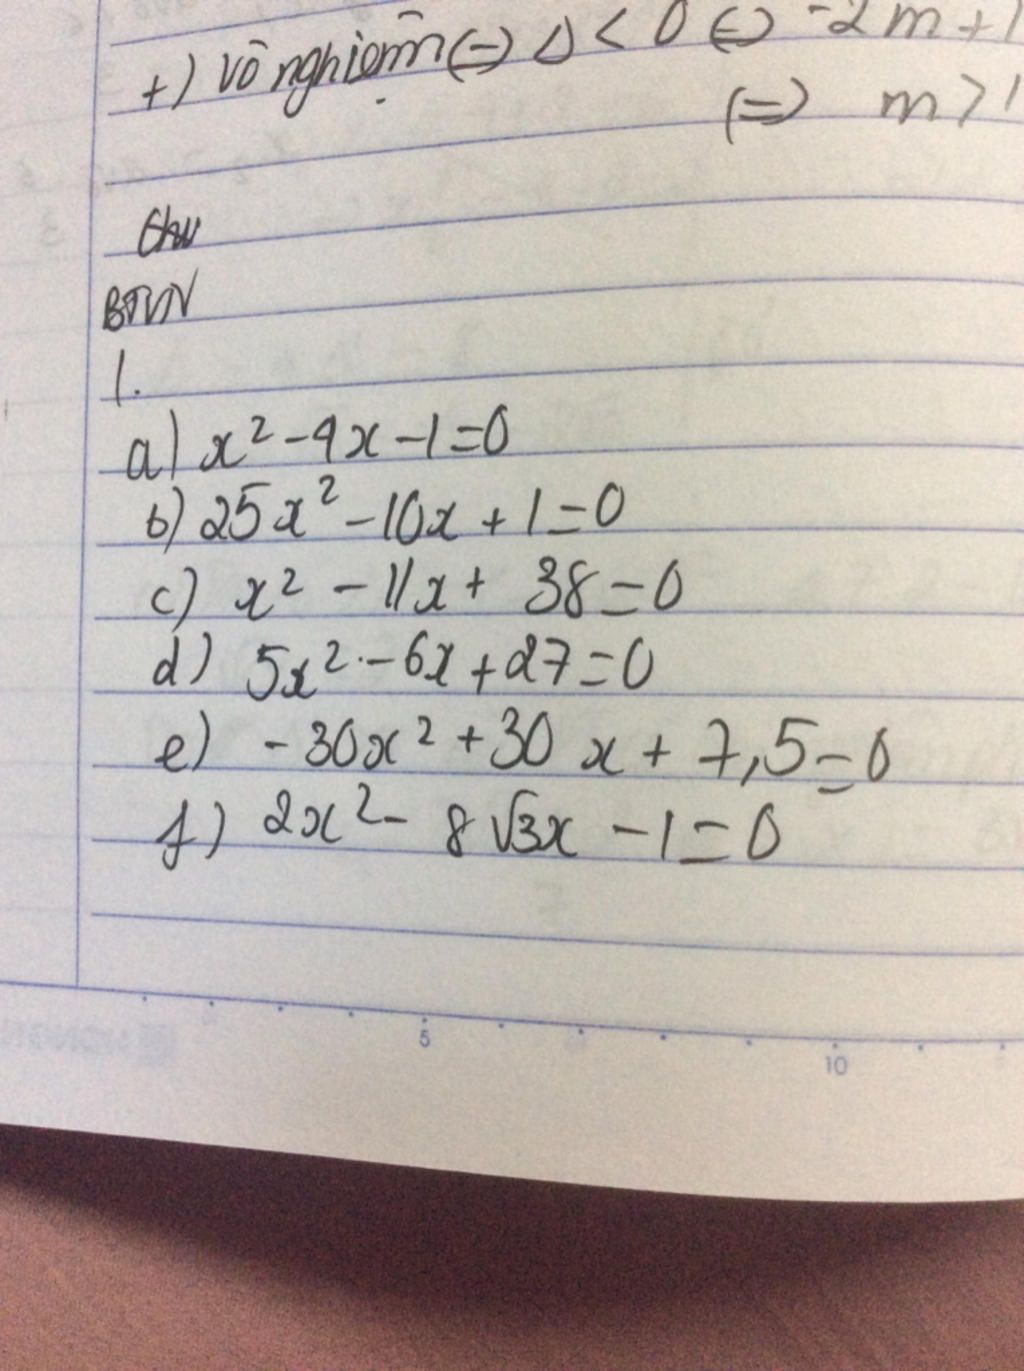 +) Vô nghiệm (=) Δ < 0 (=) -2m + 1
(=) m > 1
BTVN
1.
a) x² - 4x - 1 = 0
b) 25x² - 10x + 1 = 0
c) x² - 11x + 38 = 0
d) 5x² - 6x + 27 = 0
e) - 30x² + 30x + 7,5 = 0
f) 2x² - 8√3x - 1 = 0
5 10